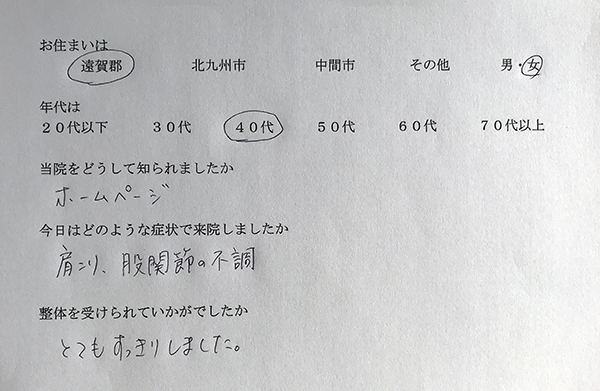 お住まいは
遠賀郡 北九州市 中間市 その他 男・女
年代は
20代以下 30代 40代 50代 60代 70代以上
当院をどうして知られましたか
ホームページ
今日はどのような症状で来院しましたか
肩こり、股関節の不調
整体を受けられていかがでしたか
とてもすっきりしました。